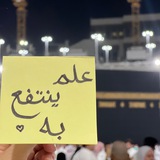 علم
ينتفع
به